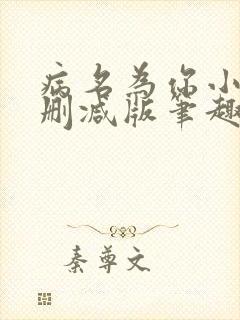 病名为你小
删减版笔趣
秦尊文